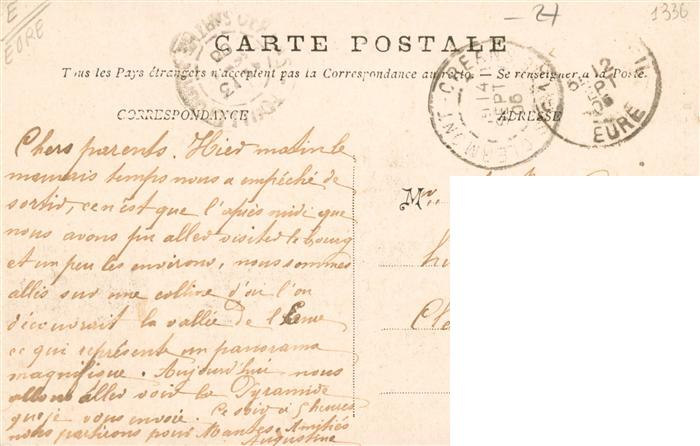 E
EURE
- 27
1336
CARTE POSTALE
Tous les Pays étrangers n'acceptent pas la Correspondance au recto. Se renseigner à la Poste.
CORRESPONDANCE
ADRESSE
CLERMONT-CREANS
SEPT
06
EURE
Chers parents. Hier matin le
mauvais temps nous a empéché de
sortir, ce n'est que l'après midi que
nous avons pu aller visiter le bourg
et un peu les environs, nous sommes
allés sur une colline d'où l'on
découvrait la vallée de l'Eure
ce qui représente un panorama
magnifique. Aujourd'hui nous
allons aller voir la Pyramide
que je vous envoie. Ce soir à 5 heures
nous partirons pour Mantes. Amitiés
Augustine
Mr.